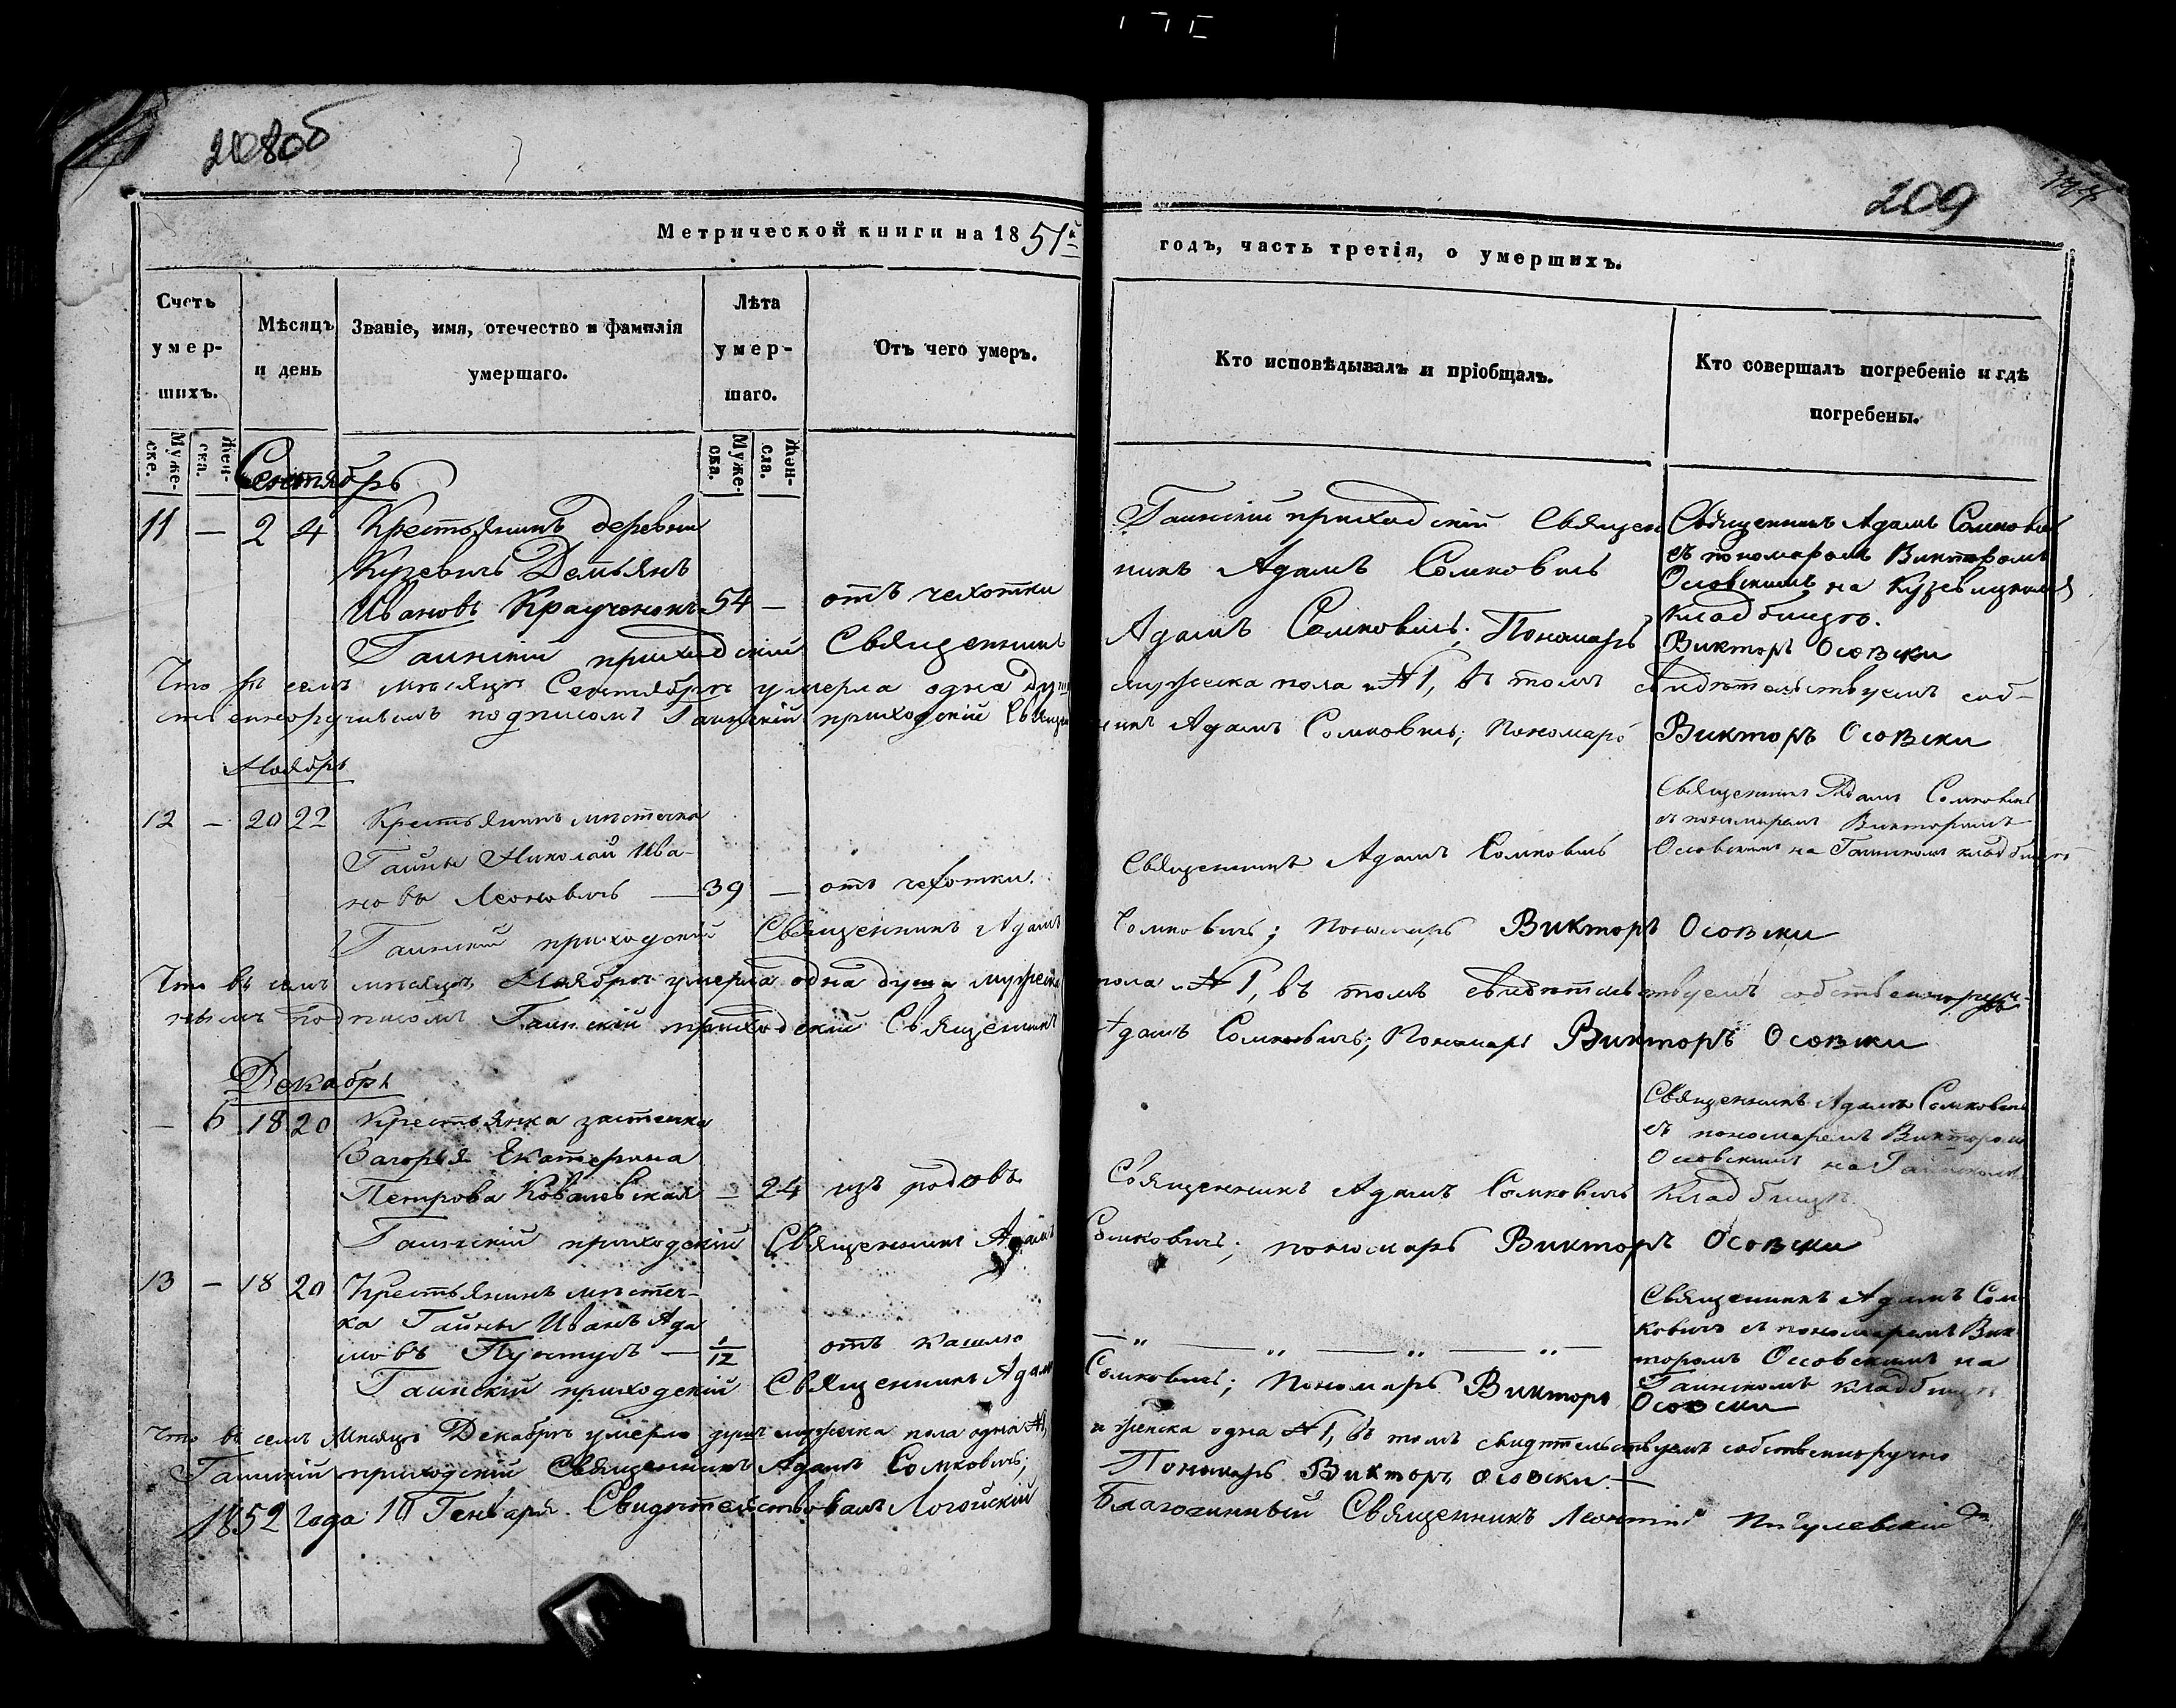 208об
209
Метрической книги на 1851й
годъ, часть третія, о умершихъ.
Счетъ умер-шихъ.
Муже-ске.
Жен-ска.
Мѣсяцъ и день
Званіе, имя, отечество и фамилія умершаго.
Лѣта умер-шаго.
Муже-ска.
Жен-ска.
Отъ чего умеръ.
Кто исповѣдывалъ и пріобщалъ.
Кто совершалъ погребеніе и гдѣ погребены.
Сентябрь
11 — 2 4 Крестьянинъ деревни
Кузевичъ Демьянъ
Ивановъ Краучонокъ 54 — отъ чехотки
Гаинскій приходскій Священ
никъ Адамъ Сомковичъ
Священникъ Адамъ Сомковичъ
съ пономаромъ Викторомъ
Осовскимъ на Кузевицкомъ
кладбищѣ.
Гаинскій приходскій Священникъ Адамъ Сомковичъ; Пономаръ Викторъ Осовски
Что въ семъ мѣсяцѣ Сентябрѣ умерла одна душа мужеска пола №1, въ томъ свидѣтельствуемъ соб-
ственоручнымъ подписомъ Гаинскій приходскій Священникъ Адамъ Сомковичъ; Пономаръ Викторъ Осовски
Ноябрь
12 — 20 22 Крестьянинъ мѣстечка
Гайны Николай Ива-
новъ Леоновичъ — 39 — отъ чехотки.
Священникъ Адамъ Сомковичъ
Священникъ Адамъ Сомковичъ
съ пономаремъ Викторомъ
Осовскимъ на Гаинскомъ кладбищѣ
Гаинскій приходскій Священникъ Адамъ Сомковичъ; пономаръ Викторъ Осовски
Что въ семъ мѣсяцѣ Ноябрѣ умерла одна душа мужеска пола №1, въ томъ свидѣтельствуемъ собственоруч-
нымъ подписомъ Гаинскій приходскій Священникъ Адамъ Сомковичъ; Пономаръ Викторъ Осовски
Декабрь
— 6 18 20 Крестьянка застенка
Загорья Екатерина
Петрова Ковалевская — 24 изъ родовъ
Священникъ Адамъ Сомковичъ
Священникъ Адамъ Сомковичъ
съ пономаремъ Викторомъ
Осовскимъ на Гаинскомъ
кладбищѣ
Гаинскій приходскій Священникъ Адамъ Сомковичъ; пономаръ Викторъ Осовски
13 — 18 20 Крестьянинъ мѣстеч-
ка Гайны Иванъ Ада
мовъ Пустулъ — 1/12 отъ кашлю
— „ — „ — „ — „ —
Священникъ Адамъ Сом
ковичъ съ пономаремъ Вик
торомъ Осовскимъ на
Гаинскомъ кладбищѣ
Гаинскій приходскій Священникъ Адамъ Сомковичъ; Пономаръ Викторъ Осовски
Что въ семъ Мѣсяцѣ Декабрѣ умерло душъ мужеска пола одна №1, и женска одна №1, въ томъ свидѣтельствуемъ собственноручно
Гаинскій приходскій Священникъ Адамъ Сомковичъ; Пономаръ Викторъ Осовски.
1852 Года 10 Генваря. Свидѣтельствовалъ Логойскій Благочинный Священникъ Леонтій Пигулевскій